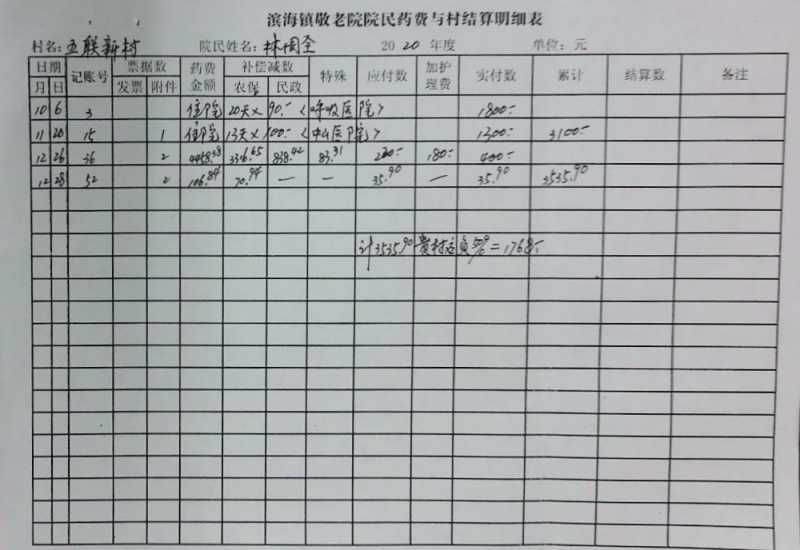 滨海镇敬老院院民药费与村结算明细表
村名：五联新村 院民姓名：林国全 2020年度 单位：元
日期 记账号 票据数 药费金额 补偿减数 特殊 应付数 加护理费 实付数 累计 结算数 备注
月 日 发票 附件 农保 民政
10 6 3 住院 20天×90.- (呼吸医院) 1800.-
11 20 15 1 住院 13天×100.- (中山医院) 1300.- 3100.-
12 26 36 2 4458.38 3316.65 838.42 83.31 220.- 180.- 400.-
12 28 52 2 106.84 70.94 — — 35.90 — 35.90 3535.90
计3535.90 贵村应负50% = 1768.-